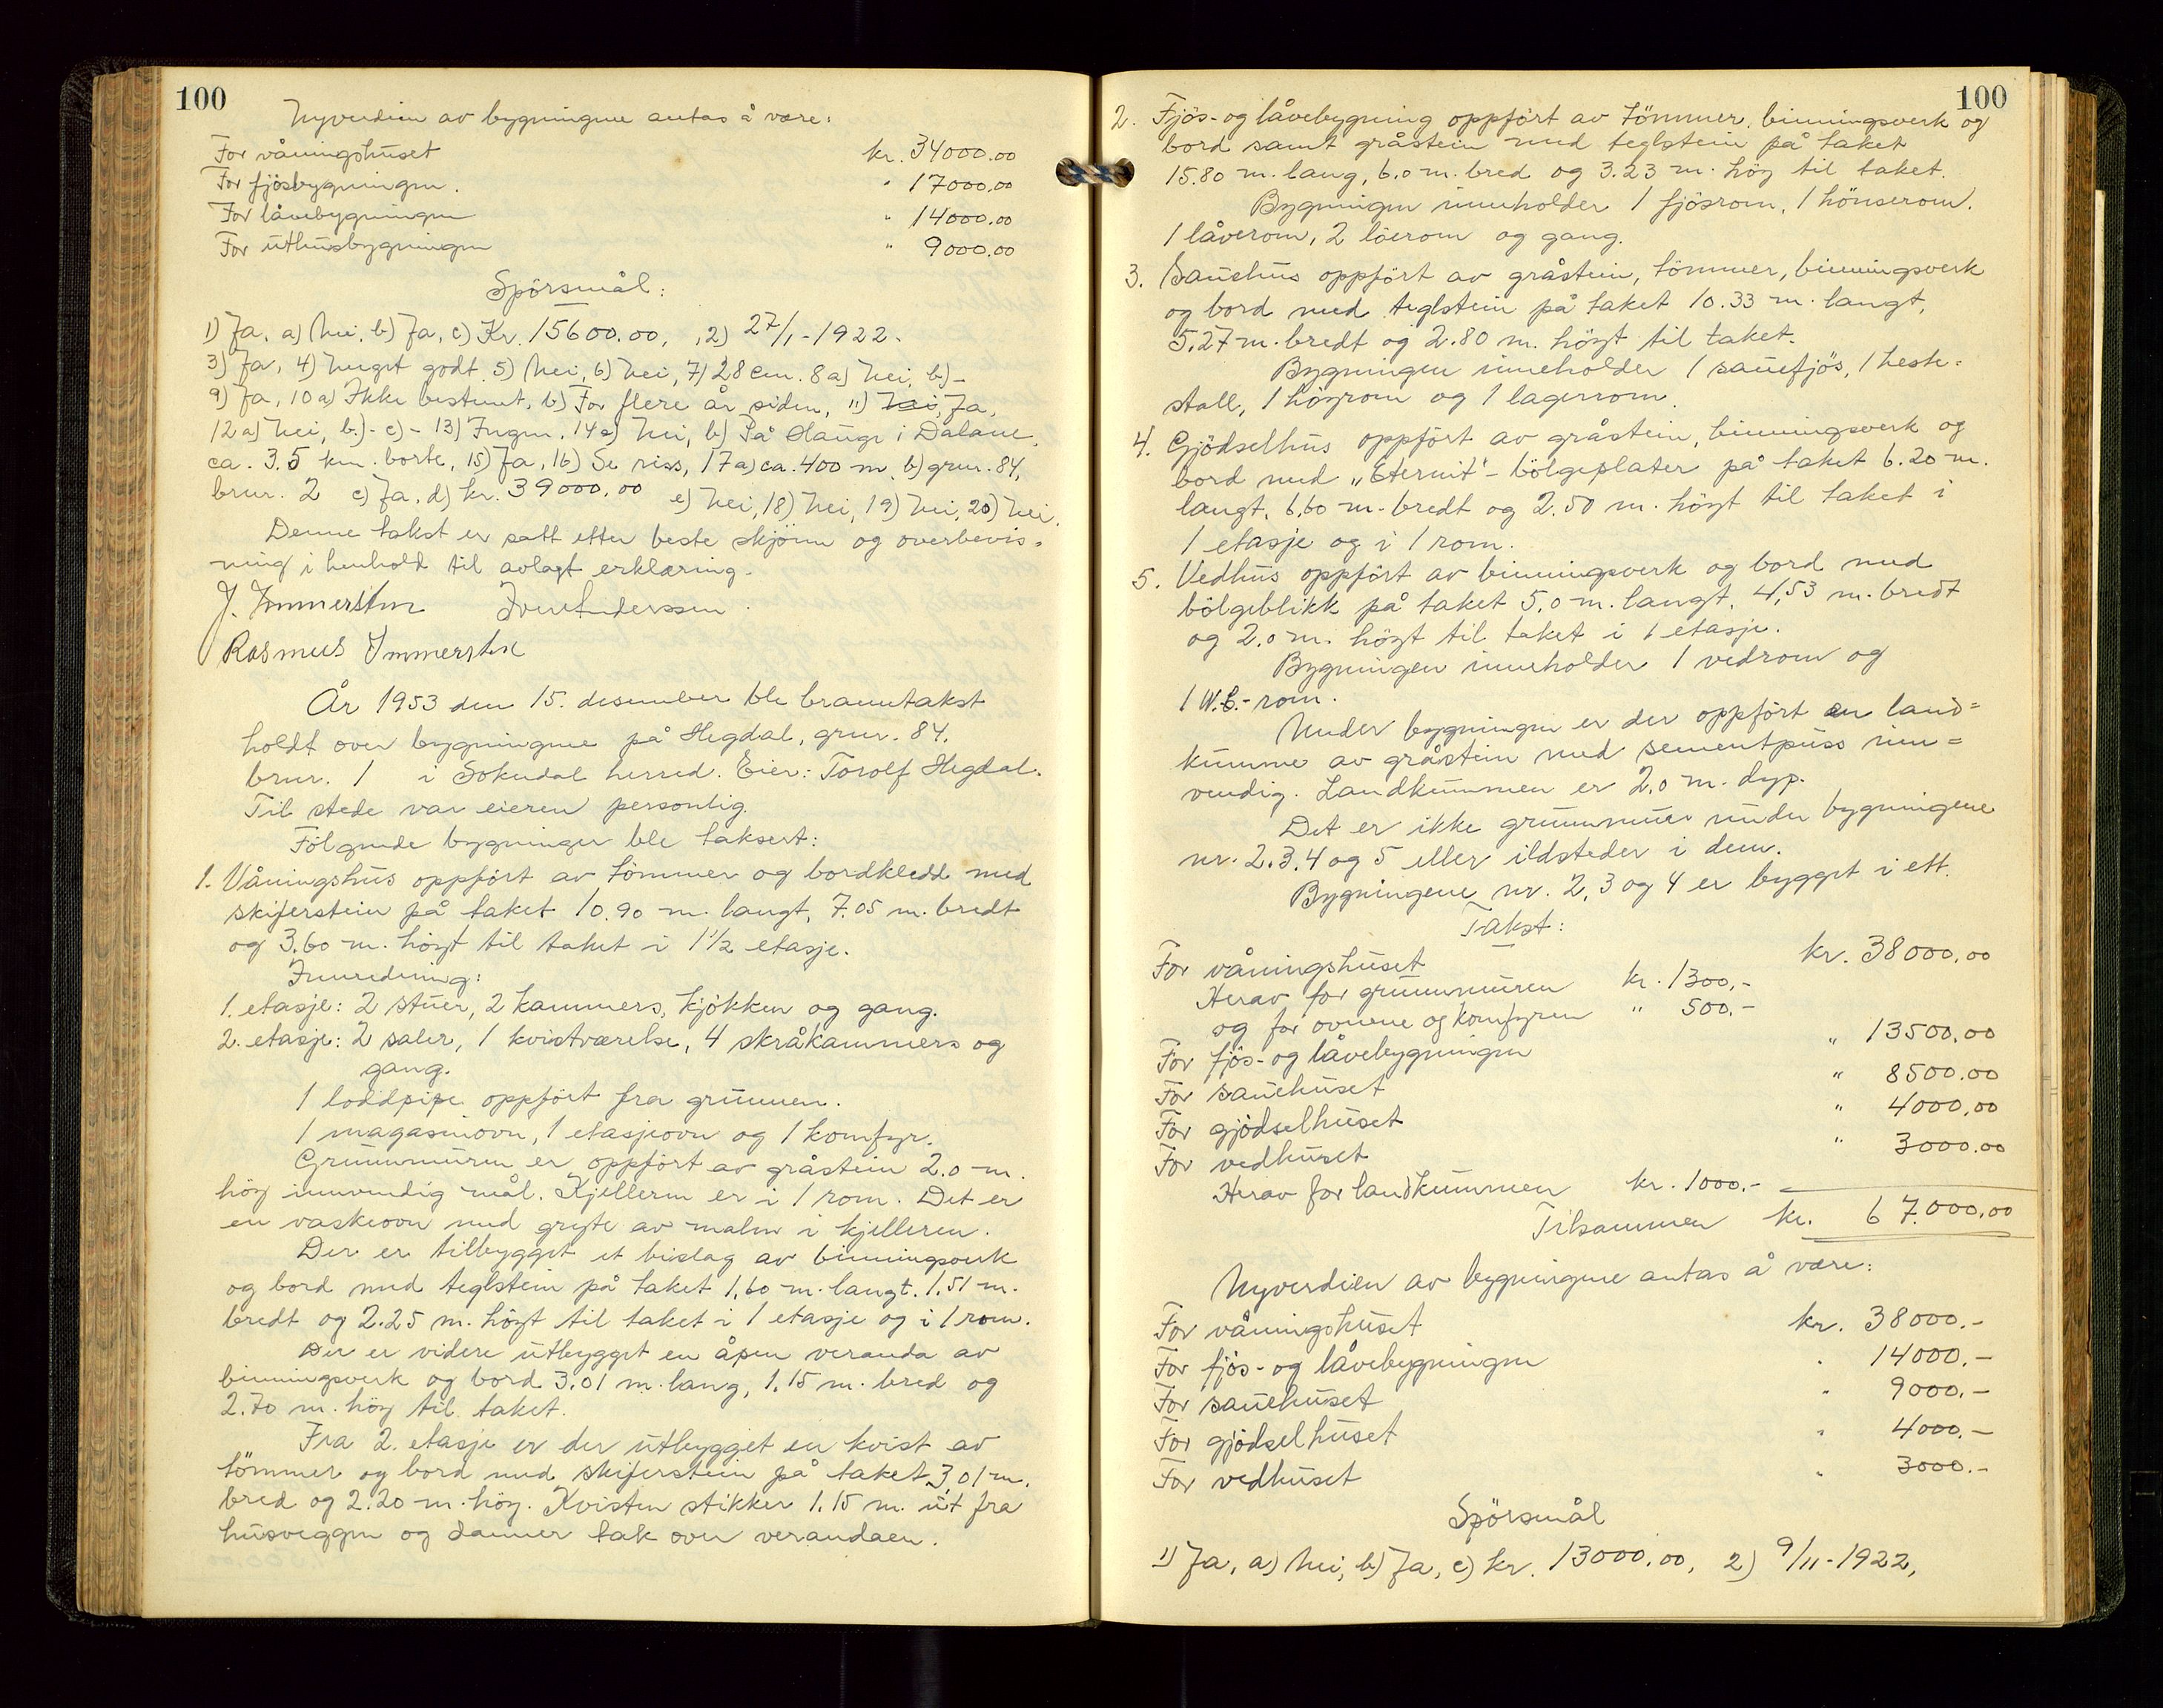 100
Nyverdien av bygningene antas å være:
For våningshuset kr. 34000.00
For fjösbygningen. " 17000.00
For låvebygningen " 14000.00
For uthusbygningen " 9000.00
Spörsmål:
1) Ja, a) Nei, b) Ja, c) Kr. 15600.00, 2) 27/1-1922.
3) Ja, 4) Meget godt 5) Nei, 6) Nei, 7) 28 cm. 8a) Nei, b)-
9) Ja, 10a) Ikke bestemt, b) For flere år siden, 11) Nei, Ja,
12a) Nei, b)- c)- 13) Ingen, 14a) Nei, b) På Hauge i Dalane,
ca. 3.5 km. borte, 15) Ja, 16) Se riss, 17a) ca. 400 m. b) grnr. 84,
brnr. 2 c) Ja, d) kr. 39000.00 e) Nei, 18) Nei, 19) Nei, 20) Nei.
Denne takst er satt etter beste skjönn og overbevis=
ning i henhold til avlagt erklæring.
J. Immerstein Iver Anderssen
Rasmus Immerstein
År 1953 den 15. desember ble branntakst
holdt over bygningene på Hegdal, grnr. 84.
brnr. 1 i Sokndal herred. Eier: Torolf Hegdal.
Til stede var eieren personlig.
Fölgende bygninger ble taksert:
1. Våningshus oppfört av tömmer og bordkledd med
skiferstein på taket 10.90 m. langt, 7.05 m. bredt
og 3.60 m. höyt til taket i 1 1/2 etasje.
Innredning:
1. etasje: 2 stuer, 2 kammers, kjökken og gang.
2. etasje: 2 saler, 1 kvistværelse, 4 skråkammers og
gang.
1 loddpipe oppfört fra grunnen.
1 magasinovn, 1 etasjeovn og 1 komfyr.
Grunnmuren er oppfört av gråstein 2.0 m.
höy innvendig mål. Kjelleren er i 1 rom. Det er
en vaskeovn med gryte av malm i kjelleren.
Der er tilbygget et bislag av binningsverk
og bord med teglstein på taket 1,60 m. langt. 1,51 m.
bredt og 2.25 m. höyt til taket i 1 etasje og i 1 rom.
Der er videre utbygget en åpen veranda av
binningsverk og bord 3.01 m. lang, 1.15 m. bred og
2.70 m. höy til taket.
Fra 2. etasje er der utbygget en kvist av
tömmer og bord med skiferstein på taket 3,01 m.
bred og 2.20 m. höy. Kvisten stikker 1.15 m. ut fra
husveggen og danner tak over verandaen.
100
2. Fjös- og låvebygning oppfört av tömmer, binningsverk og
bord samt gråstein med teglstein på taket
15.80 m. lang, 6.0 m. bred og 3.23 m. höy til taket.
Bygningen inneholder 1 fjösrom, 1 hönserom.
1 låverom, 2 löerom og gang.
3. Sauehus oppfört av gråstein, tömmer, binningsverk
og bord med teglstein på taket 10.33 m. langt,
5.27 m. bredt og 2.80 m. höyt til taket.
Bygningen inneholder 1 sauefjös, 1 heste=
stall, 1 höyrom og 1 lagerrom.
4. Gjödselhus oppfört av gråstein, binningsverk og
bord med „Eternit"- bölgeplater på taket 6.20 m.
langt, 6.60 m. bredt og 2.50 m. höyt til taket i
1 etasje og i 1 rom.
5. Vedhus oppfört av binningsverk og bord med
bölgeblikk på taket 5.0 m. langt, 4,53 m. bredt
og 2.0 m. höyt til taket i 1 etasje.
Bygningen inneholder 1 vedrom og
1 W.C.-rom.
Under bygningen er der oppfört en land=
kumme av gråstein med sementpuss inn=
vendig. Landkummen er 2.0 m. dyp.
Det er ikke grunnmur under bygningene
nr. 2.3.4 og 5 eller ildsteder i dem.
Bygningene nr. 2, 3 og 4 er bygget i ett.
Takst:
For våningshuset kr. 38000.00
Herav for grunnmuren kr. 1300,-
og for ovnene og komfyren " 500,-
For fjös- og låvebygningen " 13500.00
For sauehuset " 8500.00
For gjödselhuset " 4000.00
For vedhuset " 3000.00
Herav for landkummen kr. 1000.-
Tilsammen kr. 67.000.00
Nyverdien av bygningene antas å være:
For våningshuset kr. 38000.-
For fjös- og låvebygningen " 14000.-
For sauehuset " 9000.-
For gjödselhuset " 4000.-
For vedhuset " 3000.-
Spörsmål
1) Ja, a) Nei, b) Ja, c) kr. 13000.00, 2) 9/11-1922,